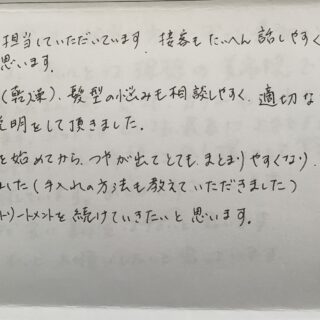 担当していただいています。接客もたいへん話しやすく
思います。
(乾燥)、髪型の悩みも相談しやすく、適切な
説明をして頂きました。
を始めてから、つやが出てとても、まとまりやすくなり、
した(手入れの方法も教えていただきました)
トリートメントを続けていきたいと思います。